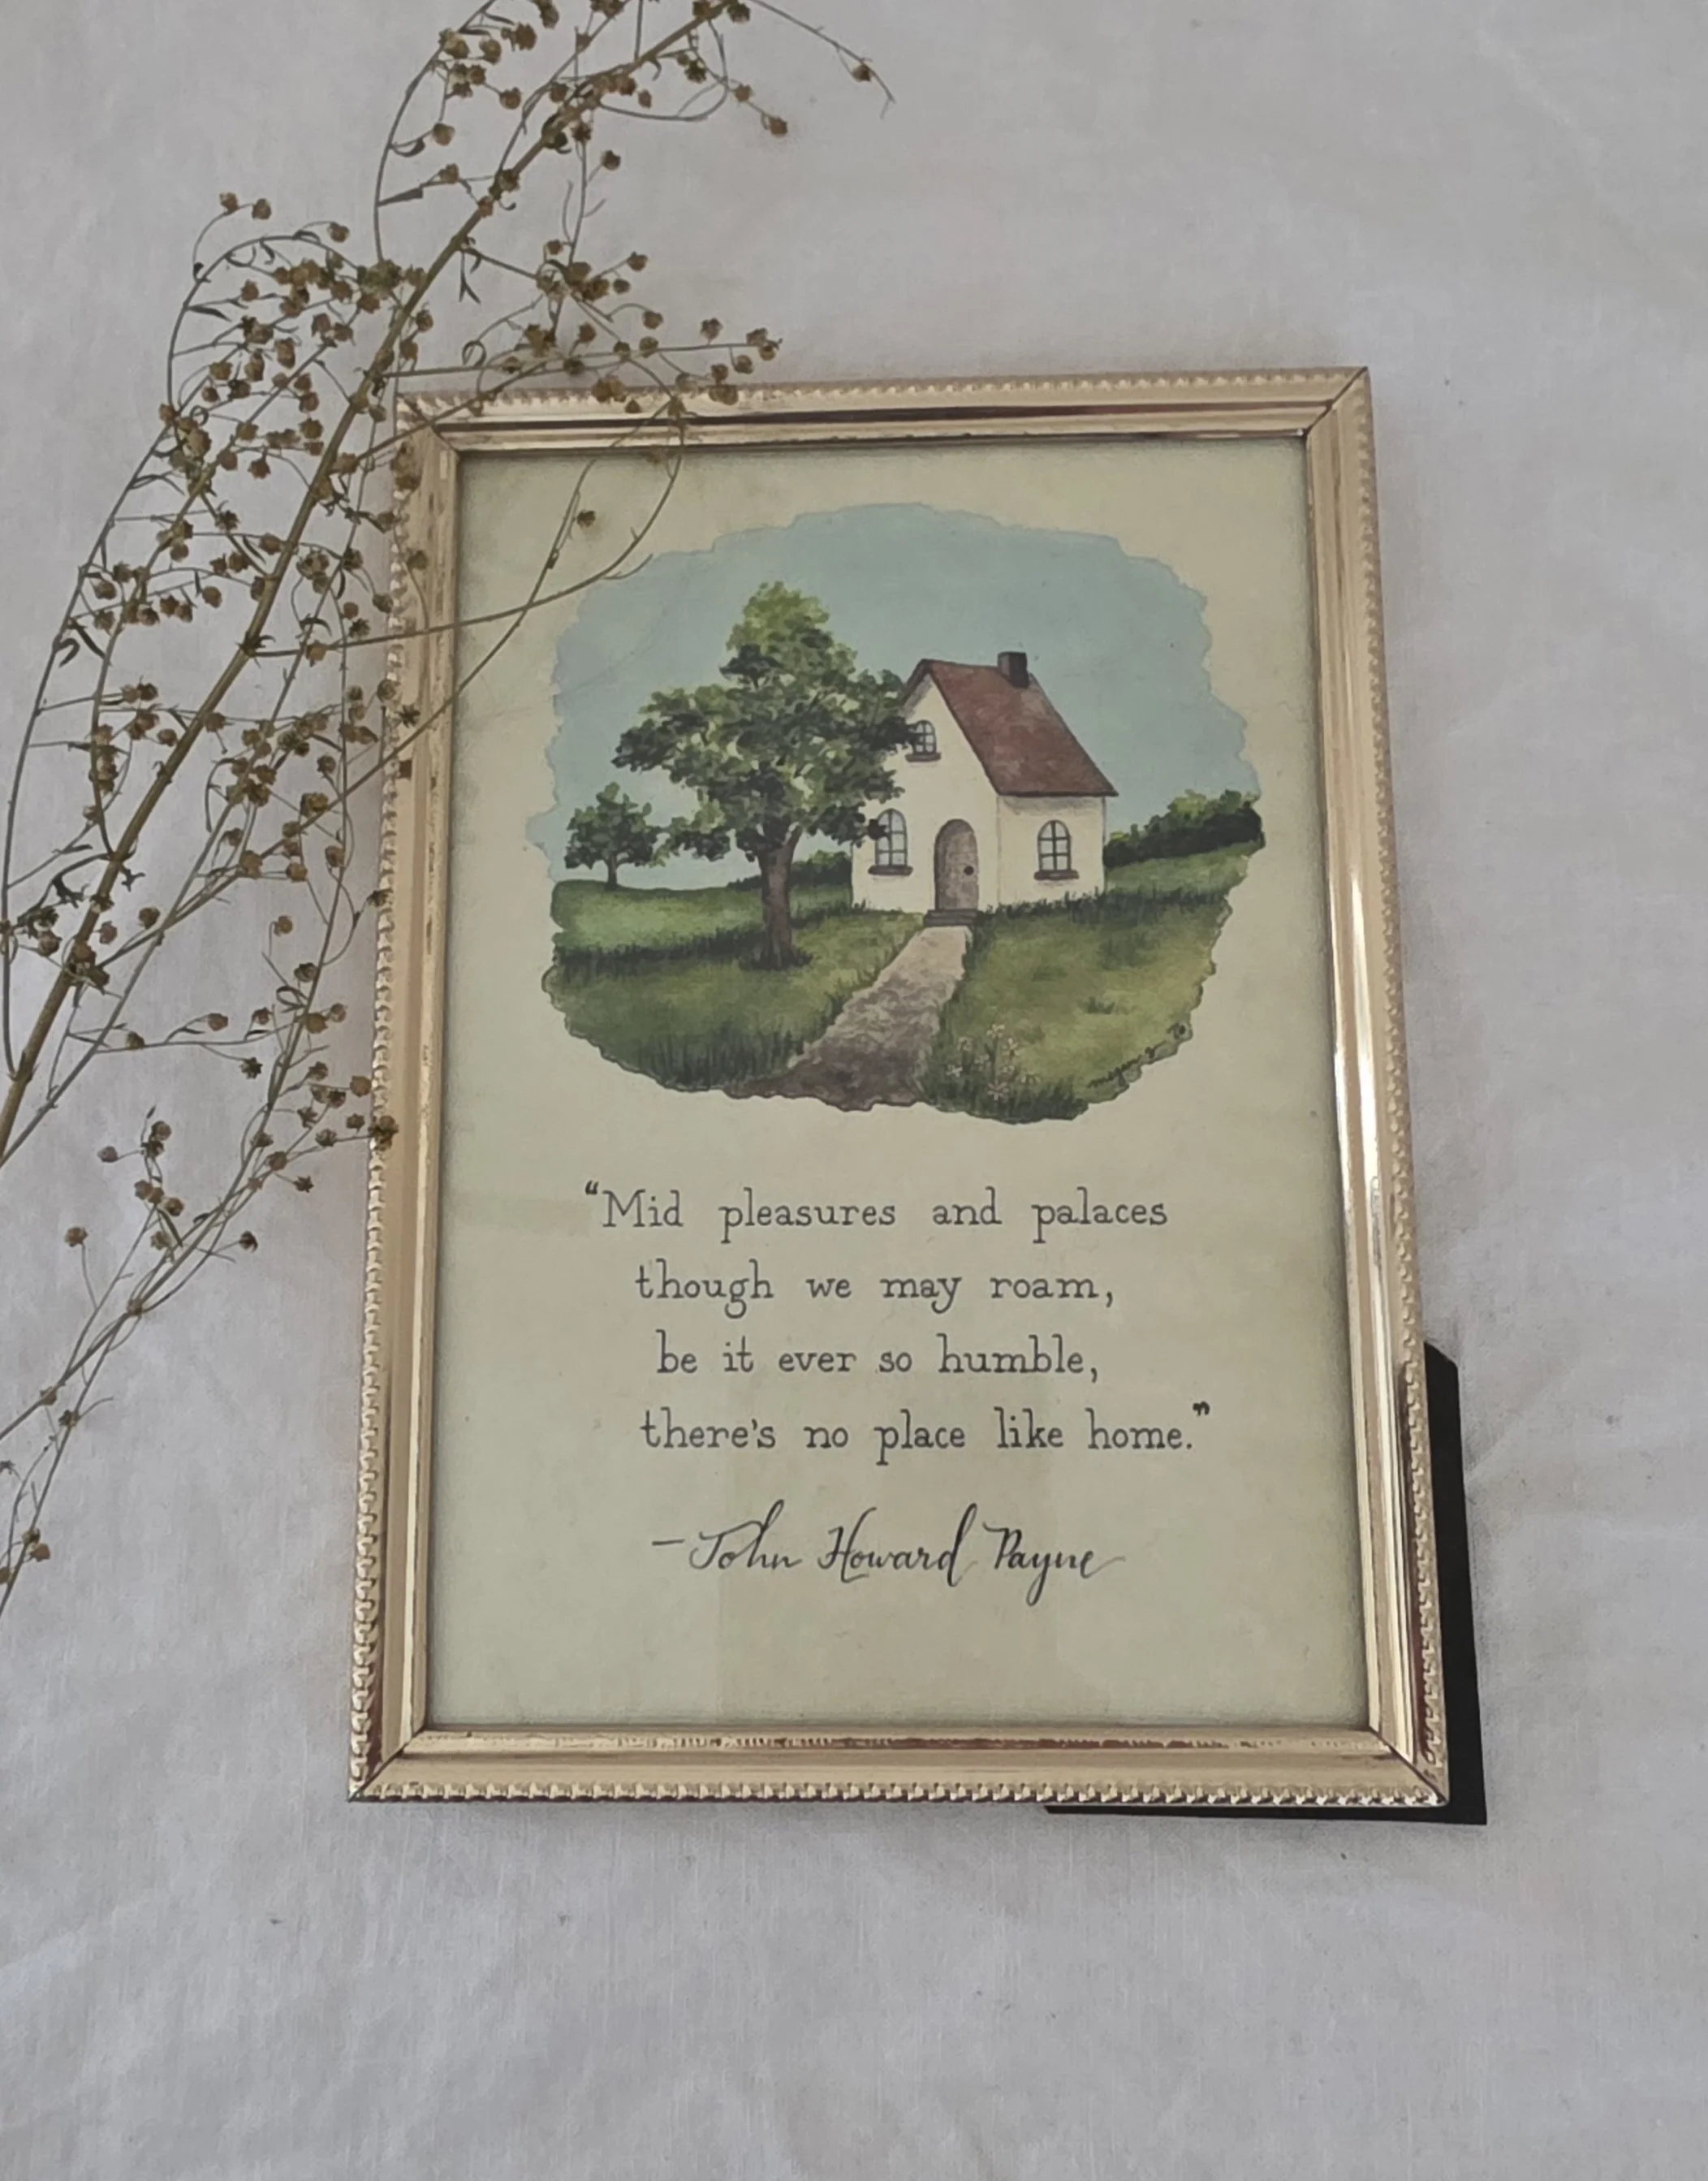 “Mid pleasures and palaces
though we may roam,
be it ever so humble,
there's no place like home.”
—John Howard Payne